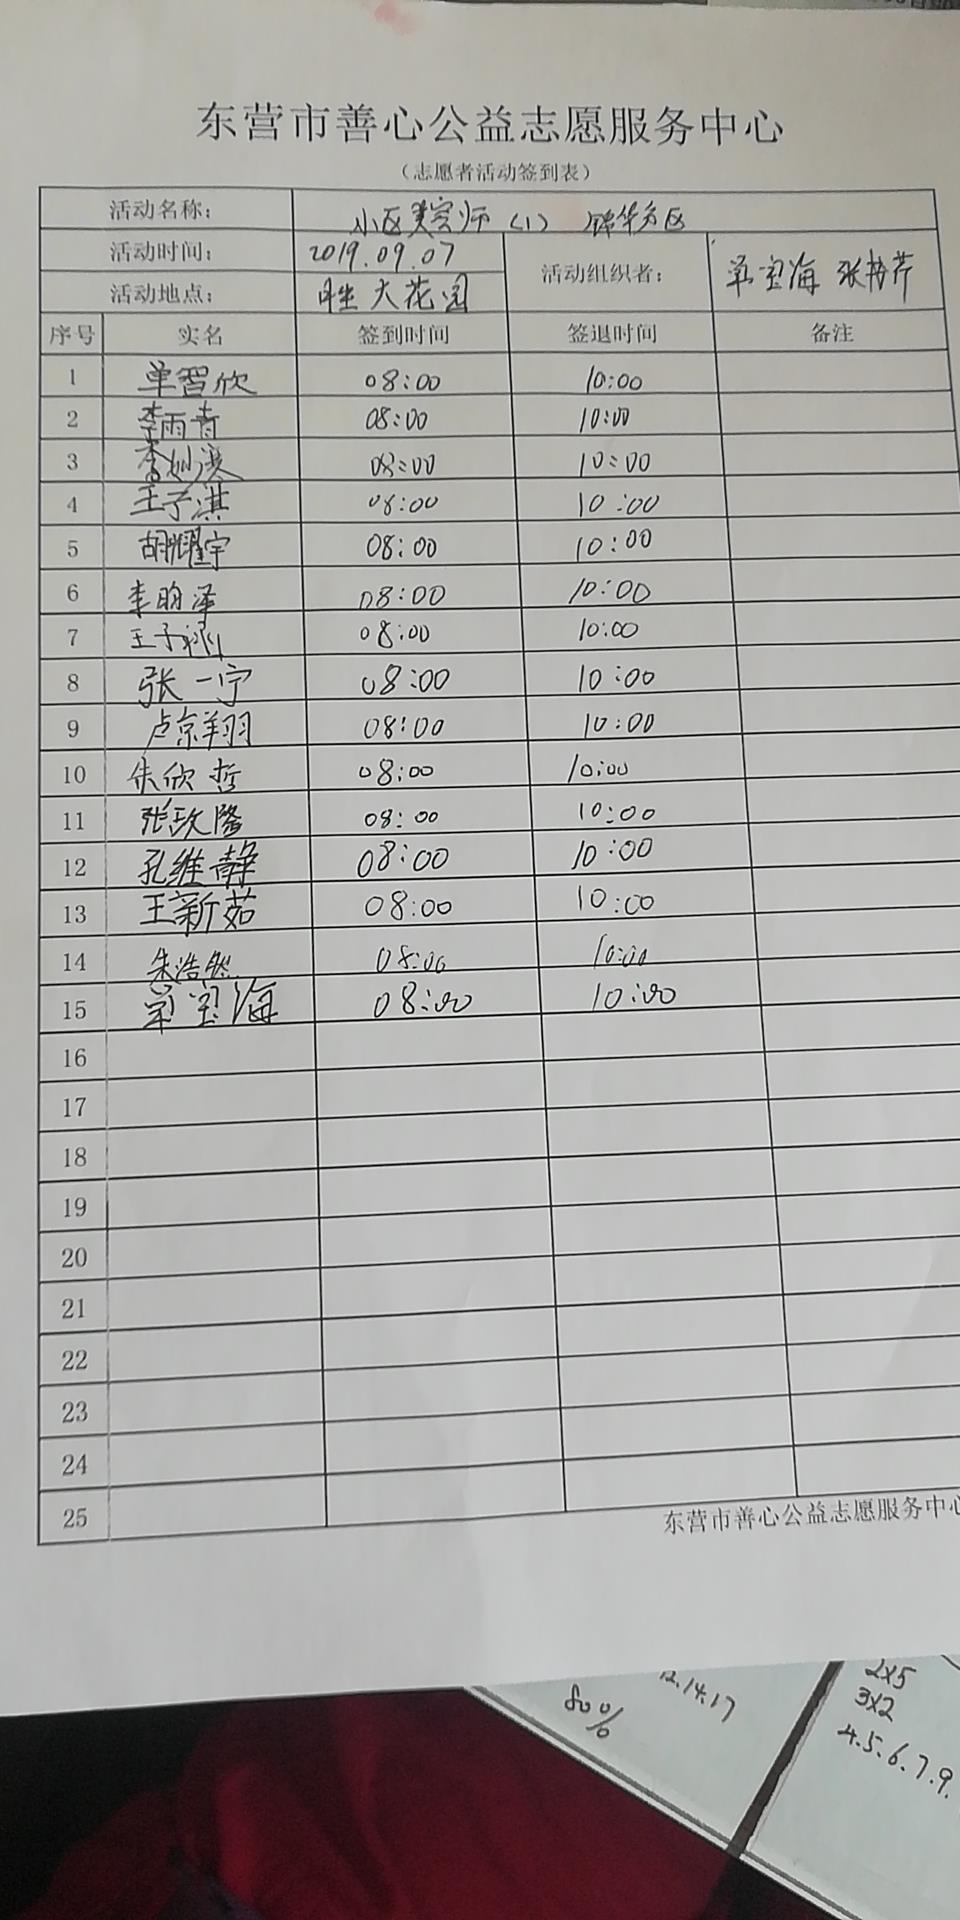 东营市善心公益志愿服务中心
（志愿者活动签到表）
活动名称： 小区美容师（1） 锦华方区
活动时间： 2019.09.07 活动组织者： 单宝海
活动地点： 胜大花园
序号 实名 签到时间 签退时间 备注
1 单智欣 08:00 10:00
2 李雨青 08:00 10:00
3 08:00 10:00
4 王子淇 08:00 10:00
5 胡耀宇 08:00 10:00
6 李昀泽 08:00 10:00
7 王子 08:00 10:00
8 张一宁 08:00 10:00
9 卢京翔 08:00 10:00
10 朱欣哲 08:00 10:00
11 张玫隆 08:00 10:00
12 孔维静 08:00 10:00
13 王新茹 08:00 10:00
14 朱浩然 08:00 10:00
15 单宝海 08:00 10:00
16
17
18
19
20
21
22
23
24
25
东营市善心公益志愿服务中心
12.14.17
80%
2×5
3×2
4.5.6.7.9.